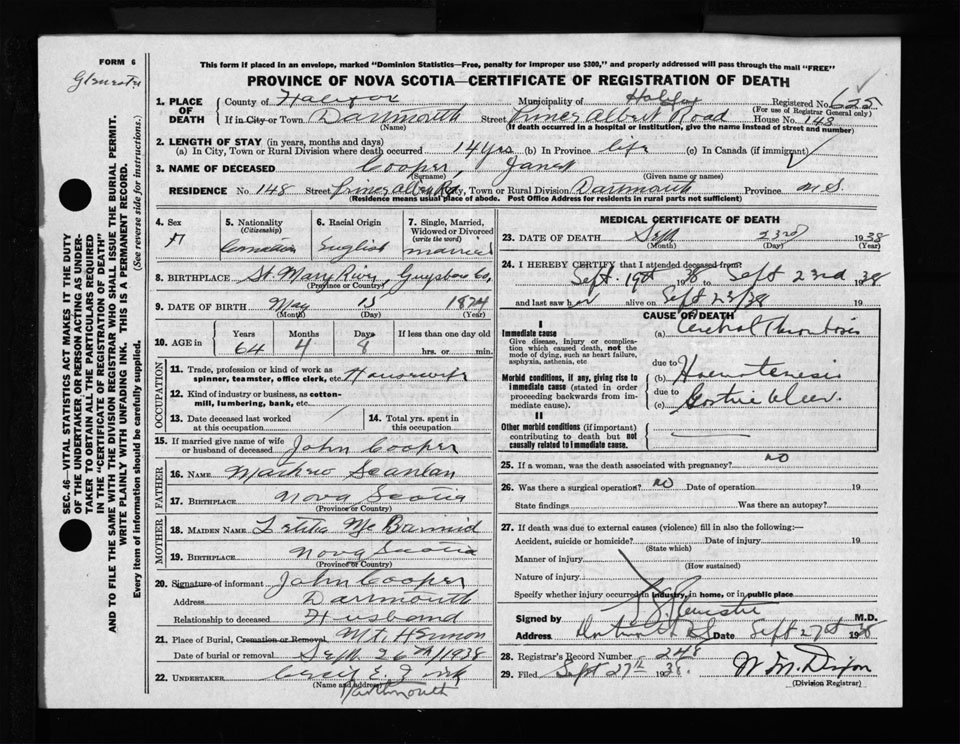 FORM 6
This form if placed in an envelope, marked "Dominion Statistics—Free, penalty for improper use $300," and properly addressed will pass through the mail "FREE"
PROVINCE OF NOVA SCOTIA—CERTIFICATE OF REGISTRATION OF DEATH
SEC. 46—VITAL STATISTICS ACT MAKES IT THE DUTY
OF THE UNDERTAKER, OR PERSON ACTING AS UNDER-
TAKER TO OBTAIN ALL THE PARTICULARS REQUIRED
IN THE "CERTIFICATE OF REGISTRATION OF DEATH"
AND TO FILE THE SAME WITH THE DIVISION REGISTRAR WHO SHALL ISSUE THE BURIAL PERMIT.
WRITE PLAINLY WITH UNFADING INK. THIS IS A PERMANENT RECORD.
Every item of information should be carefully supplied. (See reverse side for instructions.)
1. PLACE OF DEATH County of Halifax Municipality of Halifax Registered No. 625
(For use of Registrar General only)
If in City or Town Dartmouth Street Prince Albert Road House No. 148
(Name) (If death occurred in a hospital or institution, give the name instead of street and number)
2. LENGTH OF STAY (in years, months and days)
(a) In City, Town or Rural Division where death occurred 14 yrs (b) In Province life (c) In Canada (if immigrant)
3. NAME OF DECEASED Cooper, Janet
(Surname) (Given name or names)
RESIDENCE No. 148 Street Prince Albert Rd City, Town or Rural Division Dartmouth Province N.S.
(Residence means usual place of abode. Post Office Address for residents in rural parts not sufficient)
4. Sex F
5. Nationality (Citizenship) Canadian
6. Racial Origin English
7. Single, Married, Widowed or Divorced (write the word) married
8. BIRTHPLACE St. Mary River, Guysboro Co,
(Province or Country)
9. DATE OF BIRTH May 15 1874
(Month) (Day) (Year)
10. AGE in Years 64 Months 4 Days 8 If less than one day old
hrs. or min.
OCCUPATION
11. Trade, profession or kind of work as
spinner, teamster, office clerk, etc. Housewife
12. Kind of industry or business, as cotton-
mill, lumbering, bank, etc.
13. Date deceased last worked
at this occupation
14. Total yrs. spent in
this occupation
15. If married give name of wife
or husband of deceased John Cooper
FATHER
16. NAME Scanlan
17. BIRTHPLACE Nova Scotia
(Province or Country)
MOTHER
18. MAIDEN NAME
19. BIRTHPLACE Nova Scotia
(Province or Country)
20. Signature of informant John Cooper
Address Dartmouth
Relationship to deceased Husband
21. Place of Burial, Cremation or Removal, Mt. Hermon
Date of burial or removal Sept. 26th/1938
22. UNDERTAKER
(Name and address) Dartmouth
MEDICAL CERTIFICATE OF DEATH
23. DATE OF DEATH Sept 23rd 1938
(Month) (Day) (Year)
24. I HEREBY CERTIFY that I attended deceased from:
Sept. 19th 1938 to Sept 23rd 1938
and last saw her alive on Sept 23/38 19
CAUSE OF DEATH
I
Immediate cause
Give disease, injury or complica-
tion which caused death, not the
mode of dying, such as heart failure,
asphyxia, asthenia, etc
(a) Cerebral Thrombosis
due to
Morbid conditions, if any, giving rise to
immediate cause (stated in order
proceeding backwards from im-
mediate cause).
(b)
due to
(c) Gastric Ulcer.
II
Other morbid conditions (if important)
contributing to death but not
causally related to immediate cause.
25. If a woman, was the death associated with pregnancy? no
26. Was there a surgical operation? no Date of operation 19
State findings Was there an autopsy?
27. If death was due to external causes (violence) fill in also the following:—
Accident, suicide or homicide? Date of injury 19
(State which)
Manner of injury
(How sustained)
Nature of injury
Specify whether injury occurred in industry, in home, or in public place
Signed by M.D.
Address Dartmouth NS Date Sept 27th 1938
28. Registrar's Record Number 248
29. Filed Sept 27th 1938. W M. Dixon
(Division Registrar)